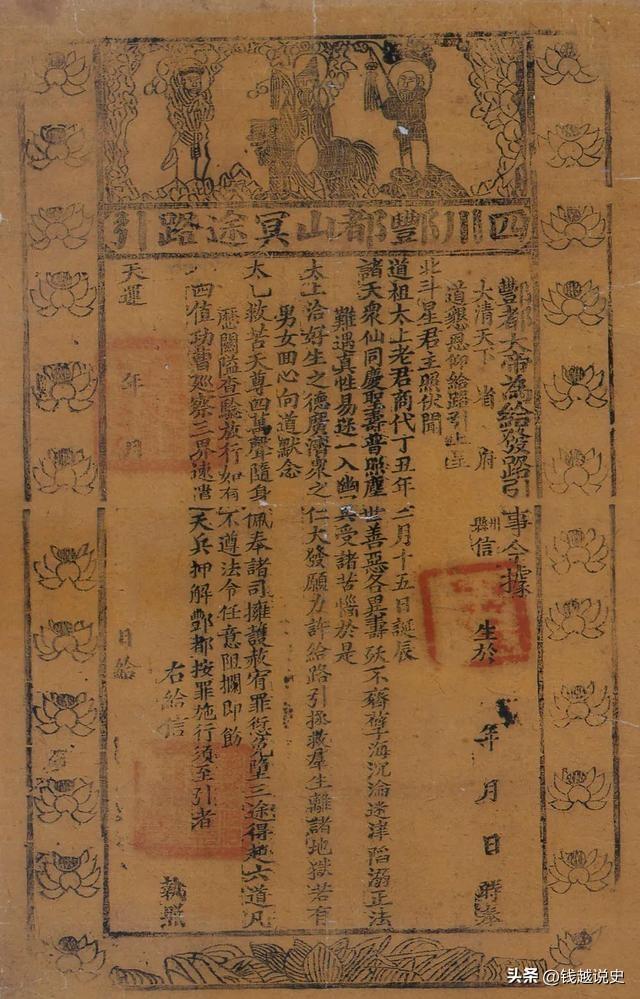 四川酆都山冥途路引
酆都大帝為給發路引事今據
大清天下 省 府 州縣 信 生於 年 月 日 時奉
道懇恩仰給路引上叩
北斗星君主照伏聞
道祖太上老君商代丁丑年二月十五日誕辰
諸天衆仙同慶聖壽普照塵世善惡各異壽殀不齊孽海沉淪迷津陷溺正法
難遇真性易迷一入幽冥受諸苦惱於是
太上洽好生之德廣濟衆之仁大發願力許給路引拯救羣生離諸地獄若有
男女回心向道默念
太乙救苦天尊四萬聲隨身佩奉諸司擁護赦宥罪愆免墮三途得超六道凡
歷關隘查驗放行如有不遵法令任意阻攔即飭
四值功曹巡察三界速遣天兵押解酆都按罪施行須至引者
右給信 執照
天運 年 月 日給
头条 @钱越说史